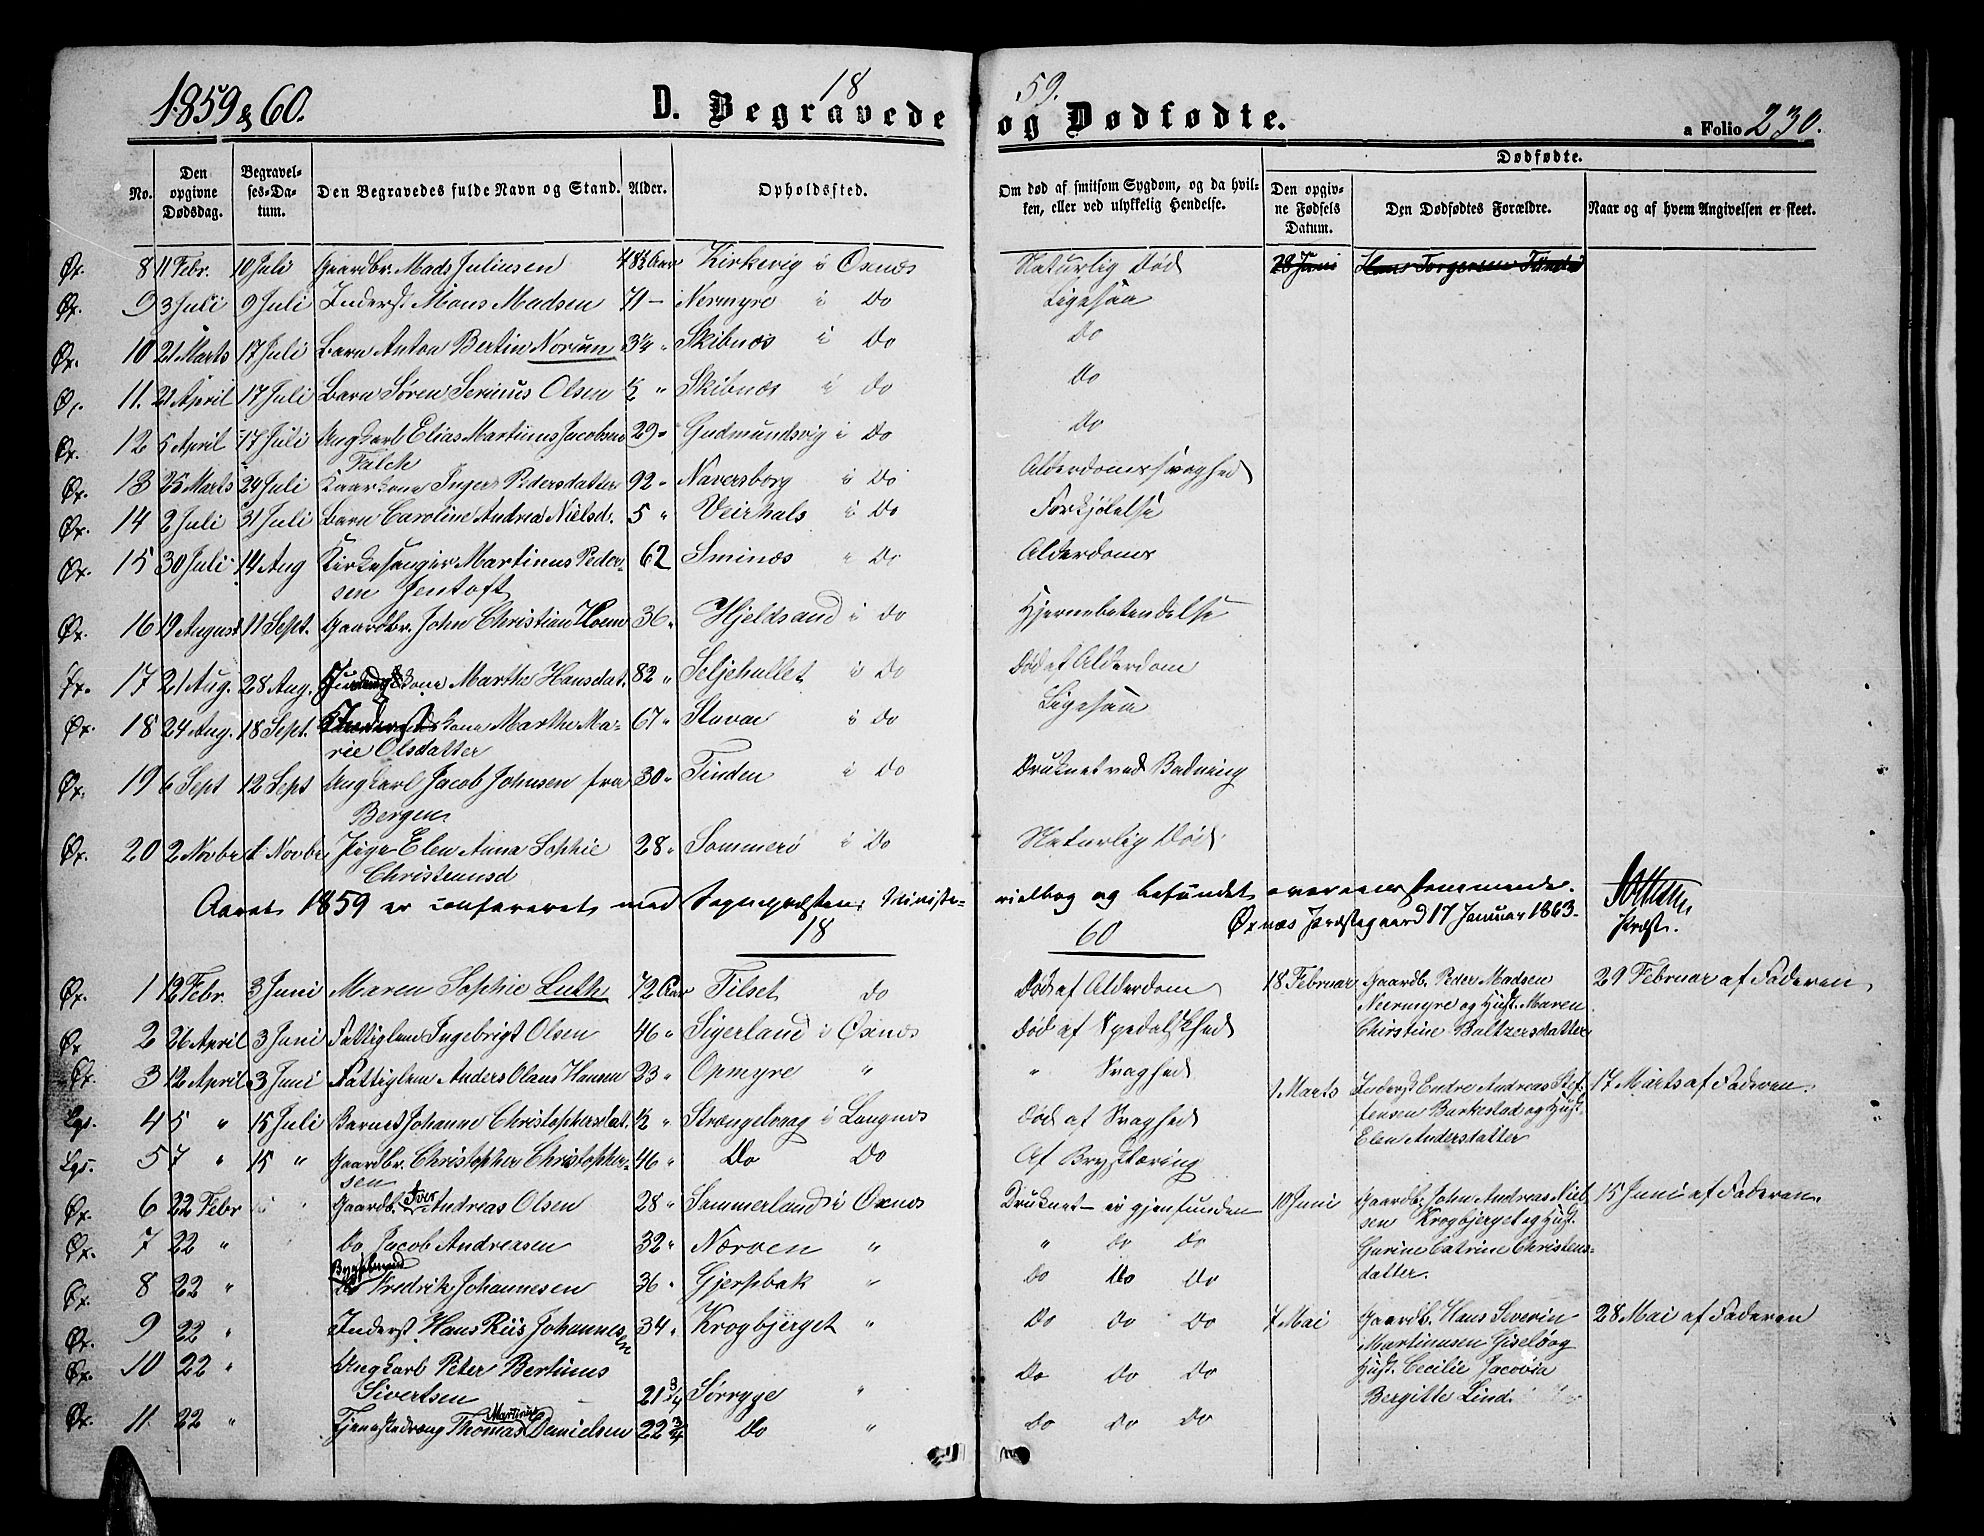 1859 & 60. D. Begravede 18 59. og Dødfødte. a Folio 230.
No. Den opgivne Dødsdag. Begravelses-Datum. Den Begravedes fulde Navn og Stand. Alder. Opholdssted. Om død af smitsom Sygdom, og da hvilken, eller ved ulykkelig Hendelse. Dødfødte. Den opgivne Fødsels Datum. Den Dødfødtes Forældre. Naar og af hvem Angivelsen er skeet.
Øx. 8 11 Febr. 10 Juli Gaardbr. Mads Juliussen Aar Kirkevig i Øxnæs Naturlig Død 28 Juni Hans Torgersen
Øx. 9 3 Juli 9 Juli Inderst Mons Madsen 71 – Nermyre i Do Ligesaa
Øx. 10 21 Marts 17 Juli Barn Anton Bertin Norum 3¼ " Skibnæs i Do Do
Øx. 11. 21 April 17 Juli Barn Søren Serinus Olsen ½ " Skibnæs i Do Do
Øx. 12 5 April 17 Juli Ungkarl Elias Martinus Jacobsen 29 " Gudmundsvig i Do Do
Falch
Øx. 13 25 Marts 24 Juli Kaarkone Inger Pedersdatter 92 " Naversborg i Do Alderdomssvaghed
Øx. 14 2 Juli 31 Juli Barn Caroline Andrea Nielsd. 5 " Veirhals i Do Forkjølelse
Øx. 15 30 Juli 14 Aug Kirkesanger Martinus Peder- 62 Sminæs " Do Alderdoms
sen Jentoft
Øx. 16 19 August 11 Sept. Gaardbr. John Christian Hoem 36 " Hjeldsand i do Hjernebetendelse
Øx. 17 21 Aug. 28 Aug. kone Martha Hansdat. 82 " Seljehullet i Do Død af Alderdom
Øx. 18 24 Aug. 18 Sept. kone Marthe Ma- 67 " Stavai i Do Ligesaa
rie Olsdatter
Øx. 19 6 Sept 12 Sept Ungkarl Jacob Johnsen fra 30 " Tinden i Do Druknet ved Badning
Bergen
Øx. 20 2 Novbr Novbr Pige Elen Anna Sophie 28 " Sommerø i Do Naturlig Død.
Christensd
Aaret 1859 er confereret med Sognepræstens Ministe- rialbog og befundet overeensstemmende.
Øxnæs Præstegaard 17 Januar 1863.
Præst.
18 60
Øx. 1 12 Febr. 3 Juni Maren Sophie Luth 72 Aar Tilset do Død af Alderdom 18 Februar Gaardb. Peder Madsen 29 Februar af Faderen
Neermyre og Hust. Maren
Øx 2 26 April 3 Juni Fattiglem Ingebrigt Olsen 46 " Sigerland i Øxnæs Død af Spedalskhed Christine Baltzersdatter
Øx. 3 12 April 3 Juni Fattiglem Anders Olaus Hansen 23 " Opmyre " " Svaghed 1 Marts Inderst Endre Andreas Stef- 17 Marts af Faderen.
fensen Barkestad og Hust.
Lgs. 4 5 " 15 Juli Barnet Johanne Christophersdat. ½ " Strængelvaag i Langnæs Død af Svaghed Elen Andersdatter
Lgs. 5 7 " 15 " Gaardbr. Christopher Christopher- 46 " Do Do Af Brysttæring
sen
Øx. 6 22 Febr Gaardb. Iver Andreas Olsen 28 " Sommerland i Øxnæs Druknet – ei gjenfunden 10 Juni Gaardb. John Andreas Niel- 15 Juni af Faderen.
sen Krogbjerget og Hust.
Øx. 7 22 " Do Jacob Andreasen 32 " Nærven " " Do Do Gurine Catrine Christens-
datter.
Øx. 8 22 " Fredrik Johannesen 36 " Gjerpbak " Do Do Do
Øx. 9 22 " Inderst. Hans Riis Johannesen 34 " Krogbjerget " Do Do Do 7 Mai Gaardb. Hans Severin 28 Mai af Faderen
Martinusen Giselø og
Øx. 10 22 " Ungkarl Peter Bertinus Do Do Do Hust. Cecilie Jacobia
Sivertsen 21 3/4 Sørrygge " Bergitte Lind.
Øx. 11. 22 " Tjenestedreng Thomas Martinus Danielsen 22 3/4 Do " Do Do Do